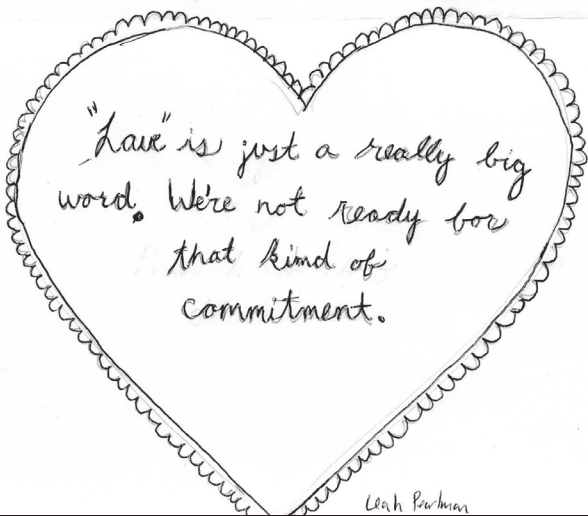 "Love" is just a really big
word. We're not ready for
that kind of
commitment.
Leah Pearlman